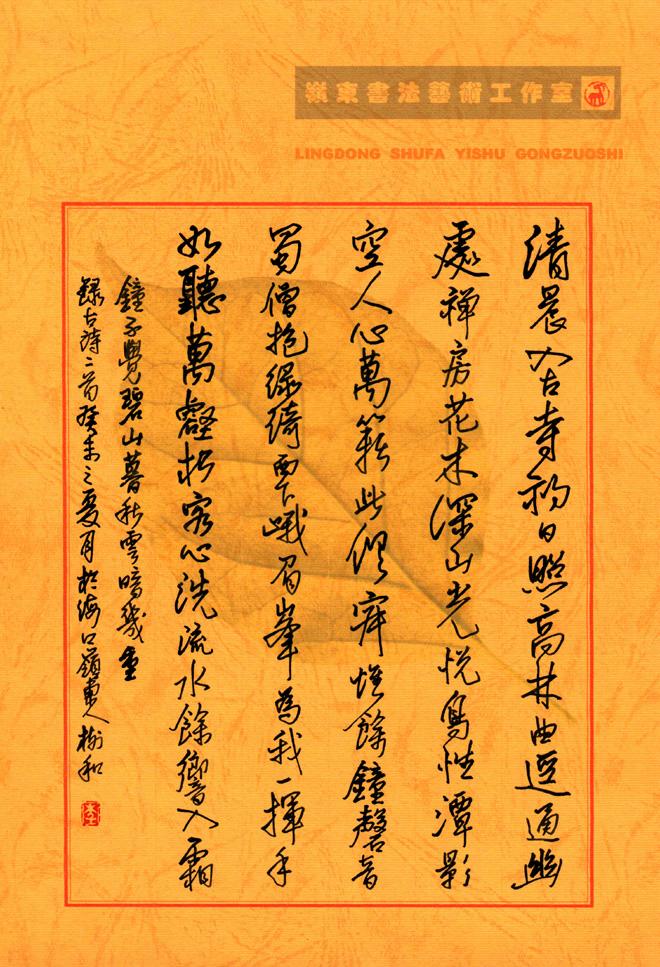 嶺東書法藝術工作室
LINGDONG SHUFA YISHU GONGZUOSHI
清晨入古寺初日照高林曲逕通幽
處禪房花木深山光悅鳥性潭影
空人心萬籟此俱寂惟餘鐘磬音
蜀僧抱綠綺西下峨眉峯為我一揮手
如聽萬壑松客心洗流水餘響入霜
鐘不覺碧山暮秋雲暗幾重
錄古詩二首癸未之夏月於海口嶺東人樹和